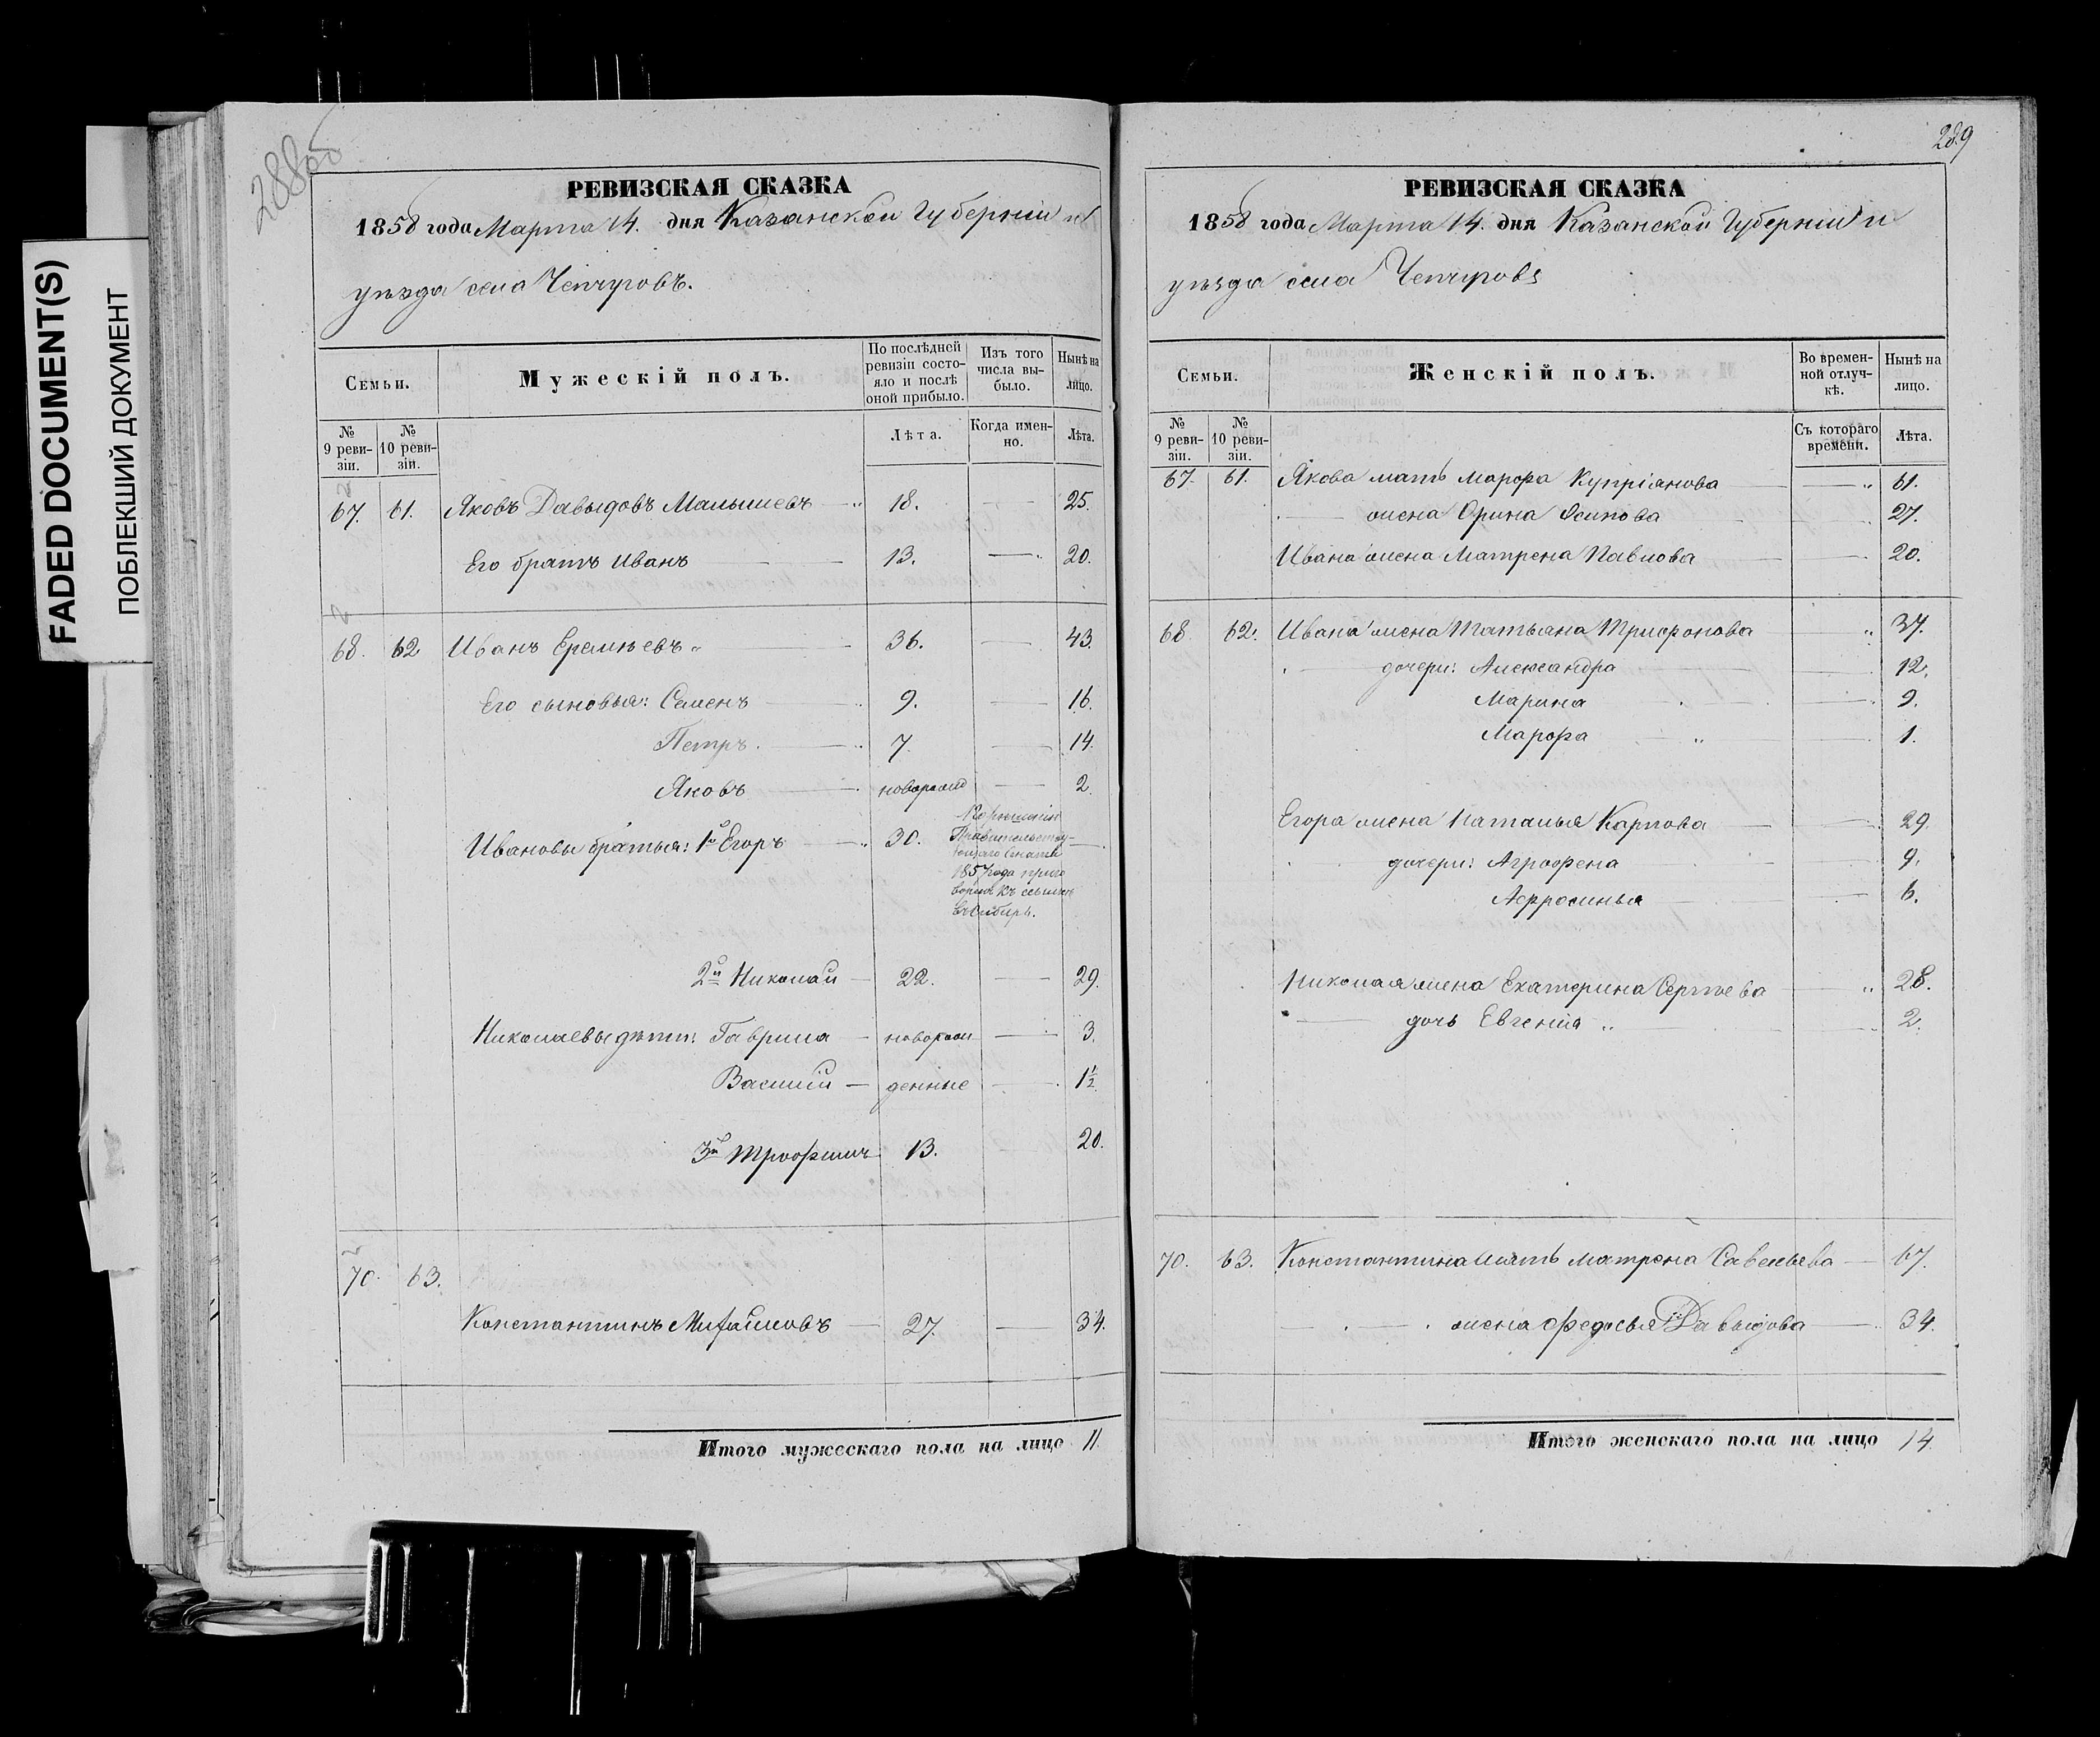 FADED DOCUMENT(S)
ПОБЛЕКШИЙ ДОКУМЕНТ
288об
РЕВИЗСКАЯ СКАЗКА
1858 года Марта 14. дня Казанской Губерніи и
уѣзда села Чепчуговъ.
Семьи.
Мужескій полъ.
По послѣдней ревизіи состояло и послѣ оной прибыло.
Изъ того числа выбыло.
Нынѣ на лицо.
№ 9 ревизіи.
№ 10 ревизіи.
Лѣта.
Когда именно.
Лѣта.
67. 61. Яковъ Давыдовъ Малышевъ 18. 25.
Его братъ Иванъ 13. 20.
68. 62 Иванъ Еремѣевъ 36. 43.
Его сыновья: Семенъ 9. 16.
Петръ. 7. 14.
Яковъ новорожд 2.
Ивановы братья: 1й Егоръ 30.
По рѣшенію
Правительству-
ющаго Сената
1857 года приго
воренъ къ ссылкѣ
въ Сибирь.
2й Николай 22. 29.
Николаевы дѣти: Гаврила новорож 3.
Василій денные 1½
3й Трофимъ 13. 20.
70. 63.
Константинъ Михайловъ 27. 34.
Итого мужескаго пола на лицо 11.
289
РЕВИЗСКАЯ СКАЗКА
1858 года Марта 14. дня Казанской Губерніи и
уѣзда села Чепчуговъ
Семьи.
Женскій полъ.
Во временной отлучкѣ.
Нынѣ на лицо.
№ 9 ревизіи.
№ 10 ревизіи.
Съ котораго времени.
Лѣта.
67. 61. Якова мать Марфа Купріянова 61.
жена Орина Осипова 27.
Ивана жена Матрена Павлова 20.
68. 62. Ивана жена Татьяна Трифонова 37.
дочери: Александра 12.
Марина 9.
Марфа 1.
Егора жена Наталья Карпова 29.
дочери: Агрофена 9.
Афросинья 6.
Николая жена Екатерина Сергѣева 28.
дочь Евгенія 2.
70. 63. Константина мать Матрена Савельева 67.
жена Федосья Давыдова 34.
Итого женскаго пола на лицо 14.